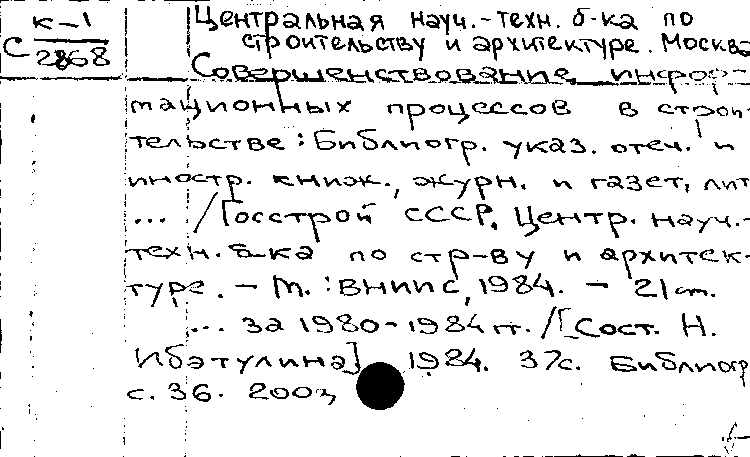 к-1
С 2868
Центральная науч.-техн. б-ка по
строительству и архитектуре. Москва
Совершенствование инфор-
мационных процессов в строи-
тельстве : Библиогр. указ. отеч. и
иностр. книж., журн. и газет. лит
... / Госстрой СССР, Центр. науч.-
техн. б-ка по стр-ву и архитек-
туре. - М. : ВНИИС, 1984. - 21 см.
... за 1980-1984 гг. / [Сост. Н.
Ибатулина] 1984. 37с. Библиогр
с. 36. 200э